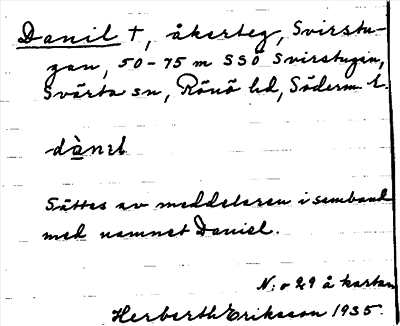 Danil †, åkerteg, Svirstu-
gan, 50-75 m SSÖ Svirstugan,
Svärta sn, Rönö hd, Söderm. l.
dànɪl
Sättes av meddelaren i samband
med namnet Daniel.
N:o 29 å kartan
Herberth Eriksson 1935.